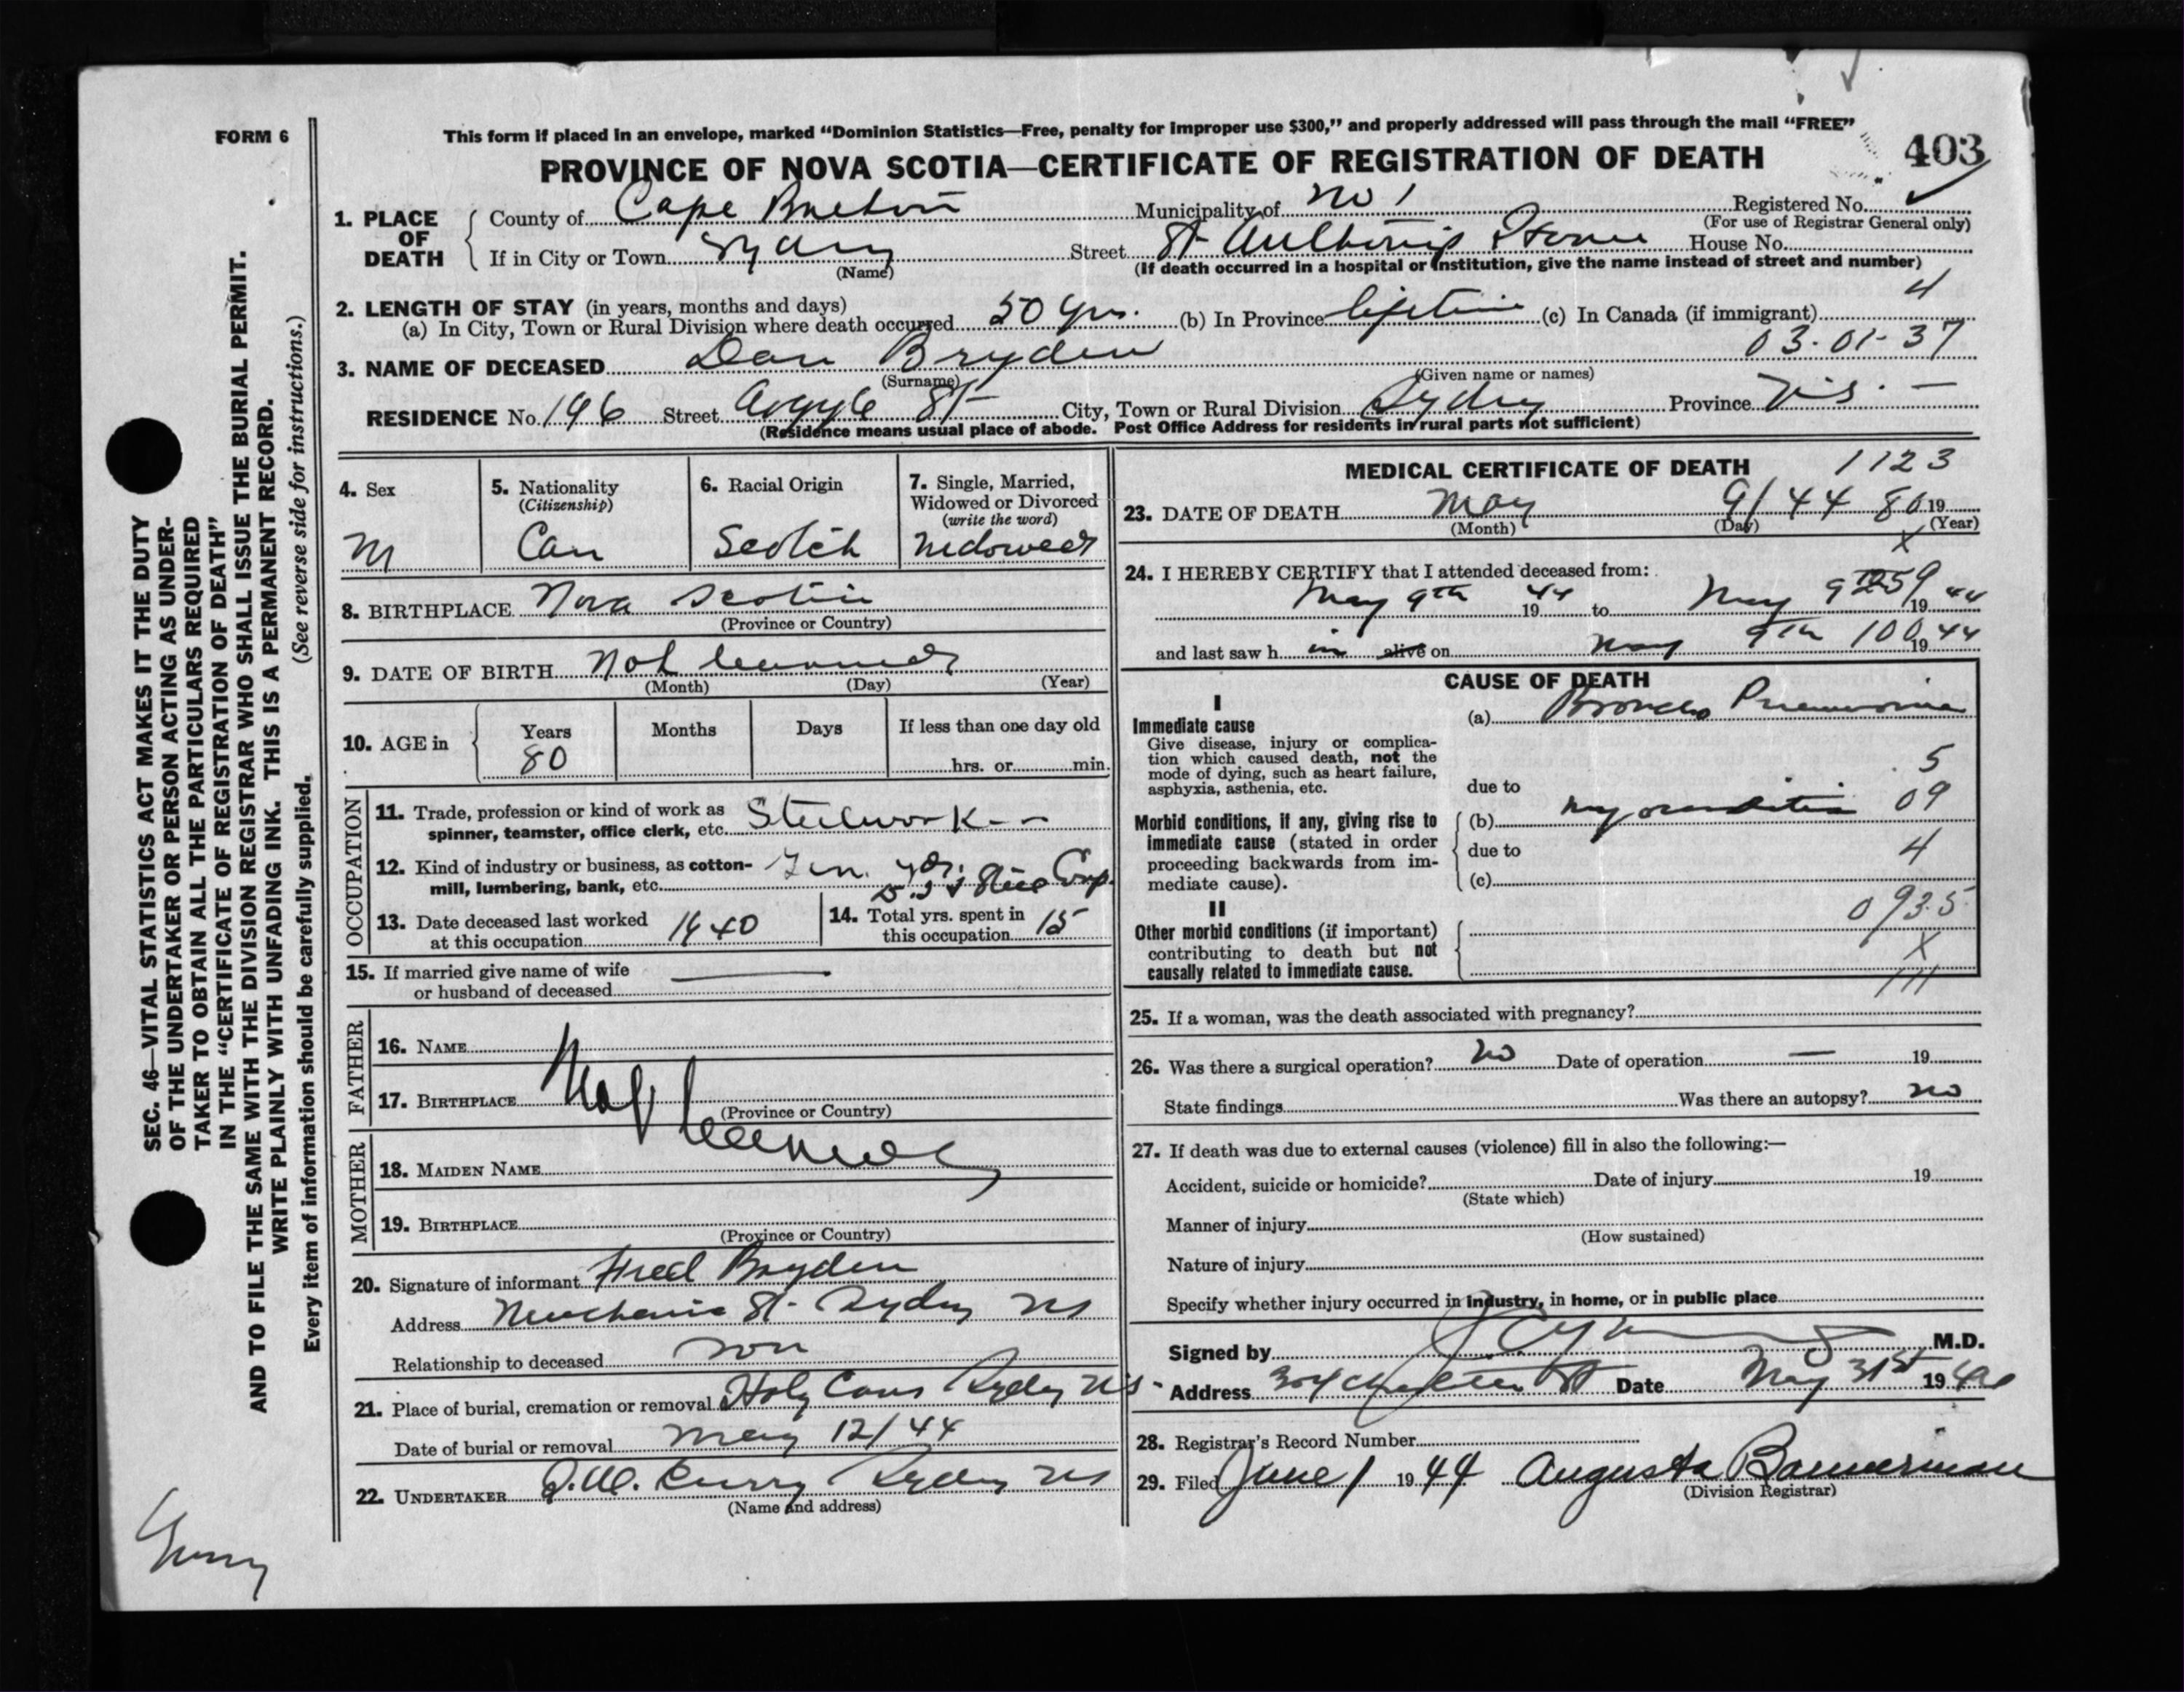 FORM 6
This form if placed in an envelope, marked "Dominion Statistics—Free, penalty for improper use $300," and properly addressed will pass through the mail "FREE"
PROVINCE OF NOVA SCOTIA—CERTIFICATE OF REGISTRATION OF DEATH
403
SEC. 46—VITAL STATISTICS ACT MAKES IT THE DUTY
OF THE UNDERTAKER OR PERSON ACTING AS UNDER-
TAKER TO OBTAIN ALL THE PARTICULARS REQUIRED
IN THE "CERTIFICATE OF REGISTRATION OF DEATH"
AND TO FILE THE SAME WITH THE DIVISION REGISTRAR WHO SHALL ISSUE THE BURIAL PERMIT.
WRITE PLAINLY WITH UNFADING INK. THIS IS A PERMANENT RECORD.
Every item of information should be carefully supplied. (See reverse side for instructions.)
1. PLACE OF DEATH
County of Cape Breton Municipality of No 1 Registered No.
(For use of Registrar General only)
If in City or Town Sydney Street St Anthony's Home House No.
(Name) (If death occurred in a hospital or institution, give the name instead of street and number)
2. LENGTH OF STAY (in years, months and days) 4
(a) In City, Town or Rural Division where death occurred 50 yrs. (b) In Province lifetime (c) In Canada (if immigrant)
03-01-37
3. NAME OF DECEASED Dan Bryden
(Surname) (Given name or names)
RESIDENCE No. 196 Street Argyle St City, Town or Rural Division Sydney Province N.S. —
(Residence means usual place of abode. Post Office Address for residents in rural parts not sufficient)
4. Sex
M
5. Nationality
(Citizenship)
Can
6. Racial Origin
Scotch
7. Single, Married,
Widowed or Divorced
(write the word)
Widowed
8. BIRTHPLACE Nova Scotia
(Province or Country)
9. DATE OF BIRTH Not learned
(Month) (Day) (Year)
10. AGE in
Years Months Days If less than one day old
80
hrs. or min.
OCCUPATION
11. Trade, profession or kind of work as
spinner, teamster, office clerk, etc. Steelwork
12. Kind of industry or business, as cotton-
mill, lumbering, bank, etc. Gen. yd. Steel Corp.
13. Date deceased last worked
at this occupation 1940
14. Total yrs. spent in
this occupation 15
15. If married give name of wife
or husband of deceased —
FATHER
16. NAME
17. BIRTHPLACE Not
(Province or Country)
MOTHER
learned
18. MAIDEN NAME
19. BIRTHPLACE
(Province or Country)
20. Signature of informant Fred Bryden
Address St. Sydney NS
Relationship to deceased son
21. Place of burial, cremation or removal Holy Cross Sydney NS
Date of burial or removal May 12/44
22. UNDERTAKER Curry Sydney NS
(Name and address)
MEDICAL CERTIFICATE OF DEATH 1123
23. DATE OF DEATH May 9/44 80 19
(Month) (Day) (Year)
X
24. I HEREBY CERTIFY that I attended deceased from:
May 9th 1944 to May 9th 259 1944
and last saw h im alive on May 9th 100 1944
CAUSE OF DEATH
I
Immediate cause
Give disease, injury or complica-
tion which caused death, not the
mode of dying, such as heart failure,
asphyxia, asthenia, etc.
(a) Broncho Pneumonia
5
due to
Morbid conditions, if any, giving rise to
immediate cause (stated in order
proceeding backwards from im-
mediate cause).
(b) Myocarditis 09
due to 4
(c)
0935
II
Other morbid conditions (if important)
contributing to death but not
causally related to immediate cause.
X
111
25. If a woman, was the death associated with pregnancy?
26. Was there a surgical operation? no Date of operation — 19
State findings Was there an autopsy? no
27. If death was due to external causes (violence) fill in also the following:—
Accident, suicide or homicide? Date of injury 19
(State which)
Manner of injury
(How sustained)
Nature of injury
Specify whether injury occurred in industry, in home, or in public place
Signed by M.D.
Address 304 Date May 31st 1944
28. Registrar's Record Number
29. Filed June 1 1944 Augusta Bannerman
(Division Registrar)